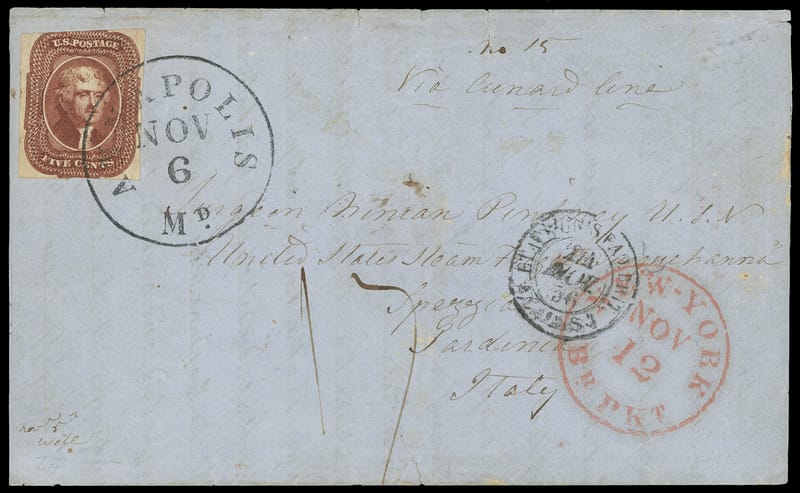 U.S. POSTAGE
FIVE CENTS
APOLIS
NOV
6
MD.
no 15
Via Cunard line
Surgeon Ninian Pinkney U.S.N
United States Steam
Spezzia
Sardinia
Italy
17
NEW-YORK
NOV
12
BR PKT
nov 5th
wife